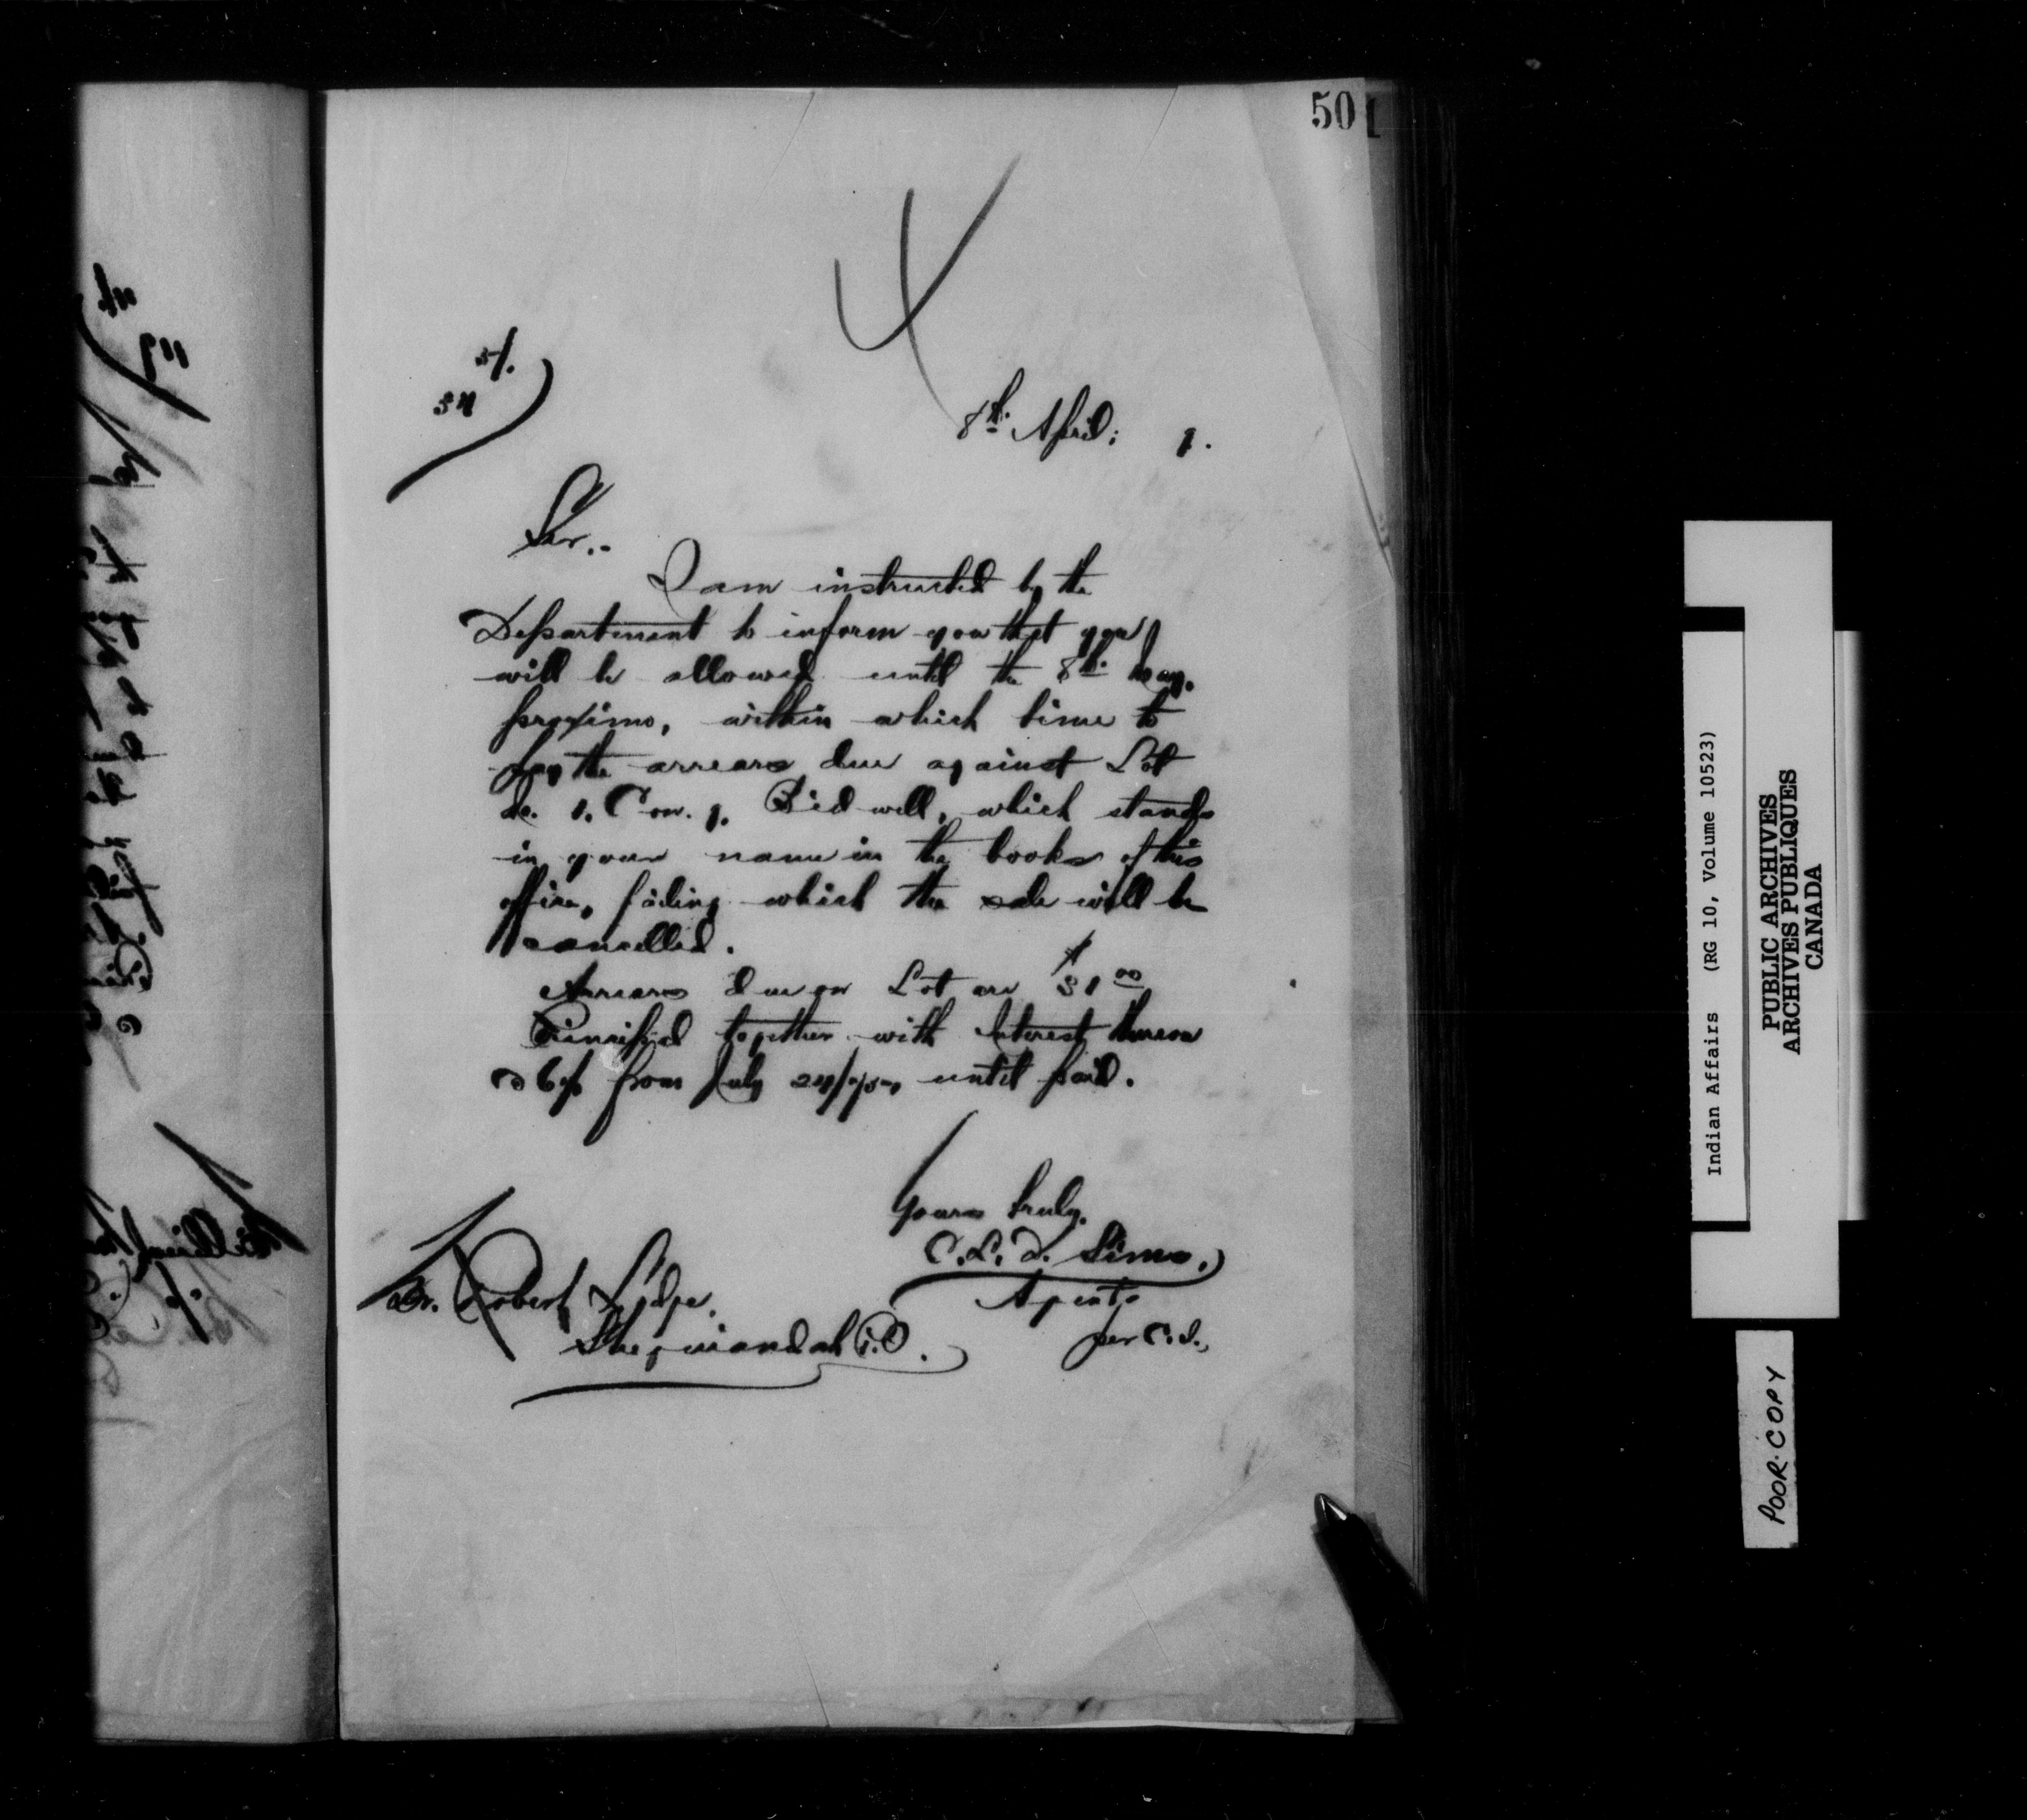 50
51.
34
8th. April: 1.
Sir.-
I am instructed by the
Department to inform you that you
will be allowed until the 8th. day,
proximo, within which time to
pay the arrears due against Lot
1. Con. 1. Bidwell, which stands
in your name in the books of this
office, failing which the sale will be
cancelled.
Arrears due on Lot are $31 00
Principal together with Interest thereon
@ 6% from July until paid.
Yours truly,
C. L. D. Sims.
Agent.
per C. S.,
Mr. Robert
Sheguiandah P.O.
Indian Affairs (RG 10, Volume 10523)
PUBLIC ARCHIVES
ARCHIVES PUBLIQUES
CANADA
POOR COPY